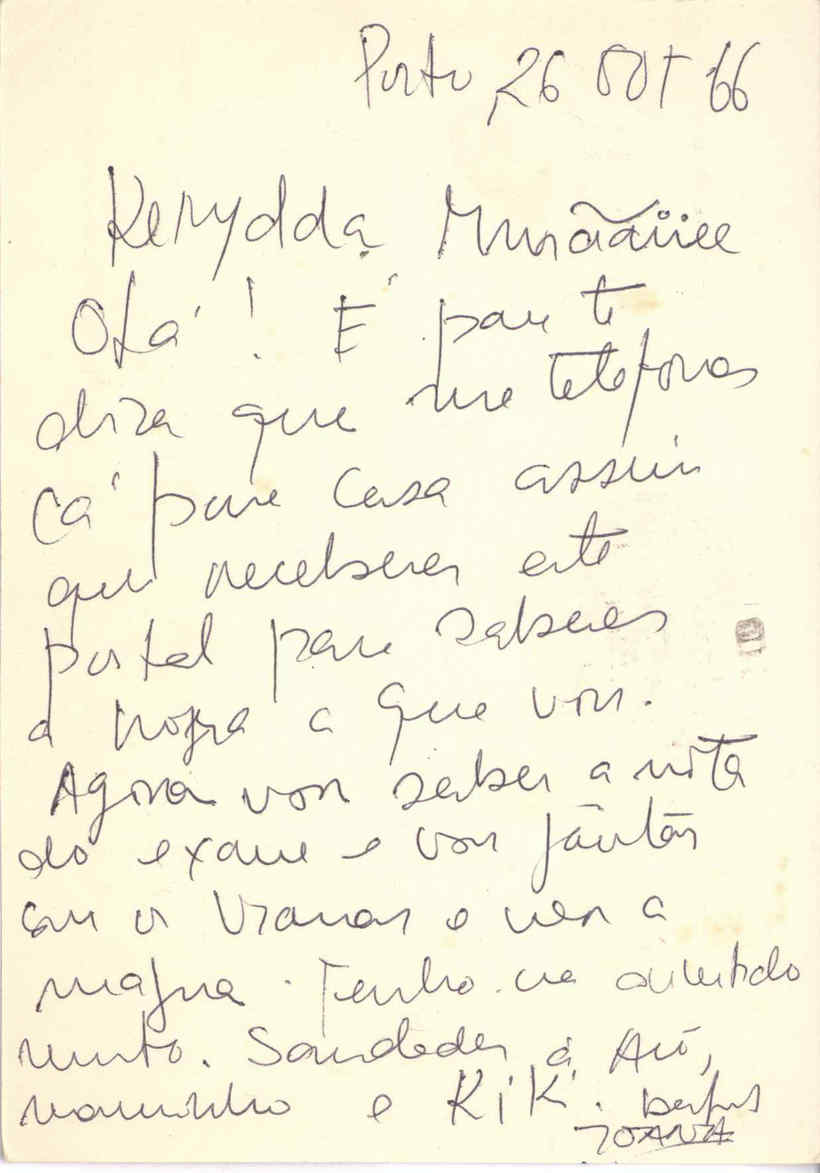 Porto, 26 Out 66
Kerydda Munããüiee
Olá! É para te
dizer que me telefonas
cá para casa assim
que receberes este
postal para saberes
a hora a que vou.
Agora vou saber a nota
do exame e vou jantar
com os e ver a
magna. Tenho-me divertido
muito. Saudades à Avó,
e KiKi. beijos
JOANA